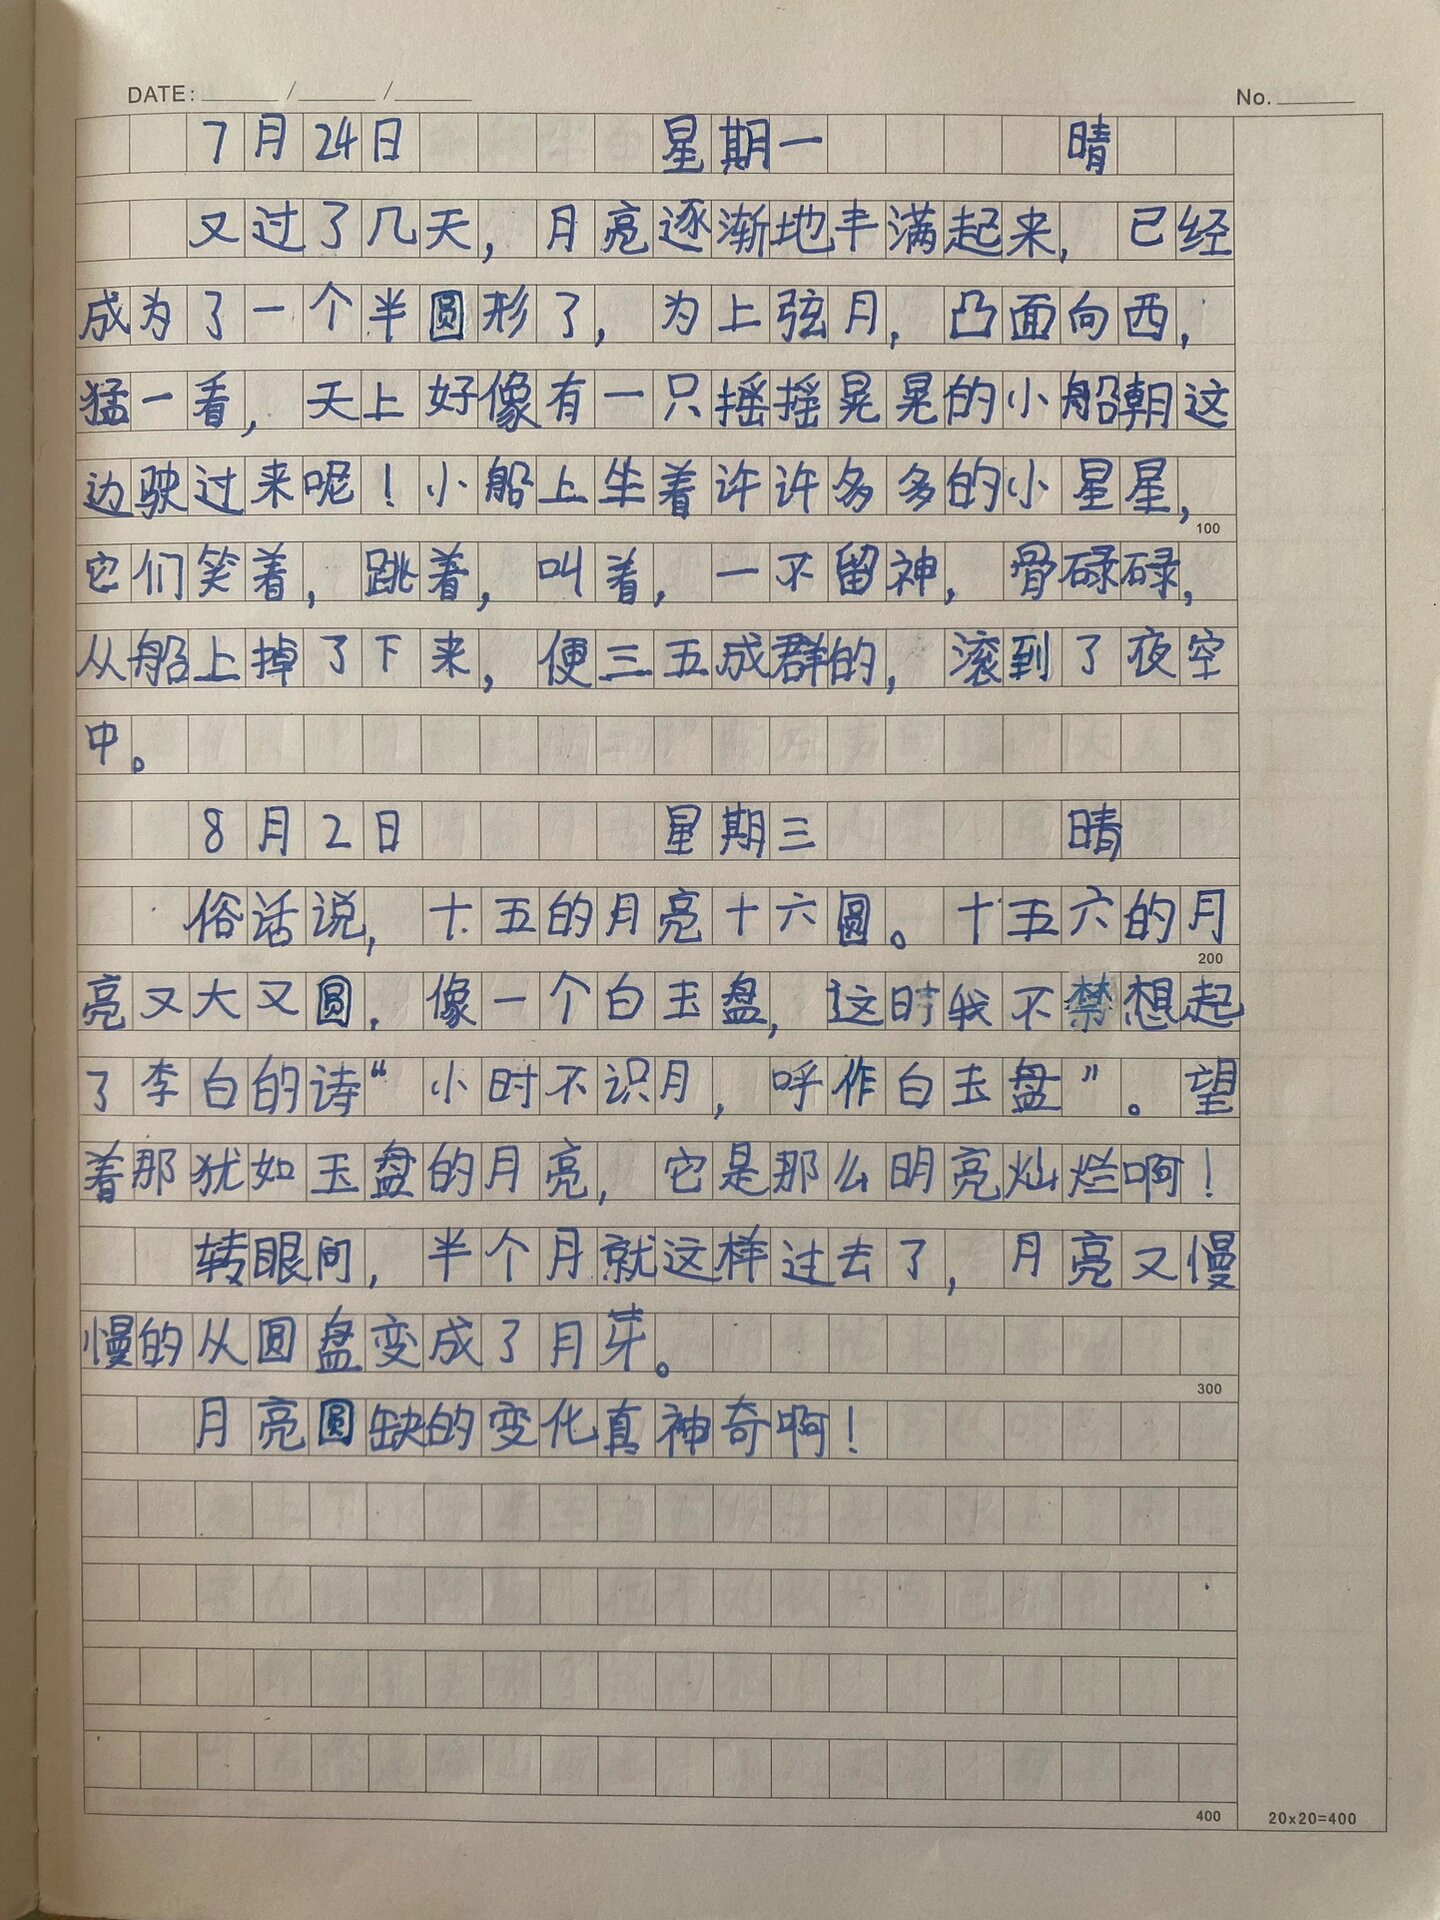 DATE: ____/____/____ No.____
7月24日 星期一 晴
又过了几天，月亮逐渐地丰满起来，已经
成为了一个半圆形了，为上弦月，凸面向西，
猛一看，天上好像有一只摇摇晃晃的小船朝这
边驶过来呢！小船上坐着许许多多的小星星，
100
它们笑着，跳着，叫着，一不留神，骨碌碌，
从船上掉了下来，便三五成群的，滚到了夜空
中。
8月2日 星期三 晴
俗话说，十五的月亮十六圆。十五六的月
200
亮又大又圆，像一个白玉盘，这时我不禁想起
了李白的诗“小时不识月，呼作白玉盘”。望
着那犹如玉盘的月亮，它是那么明亮灿烂啊！
转眼间，半个月就这样过去了，月亮又慢
慢的从圆盘变成了月芽。
300
月亮圆缺的变化真神奇啊！
400 20x20=400